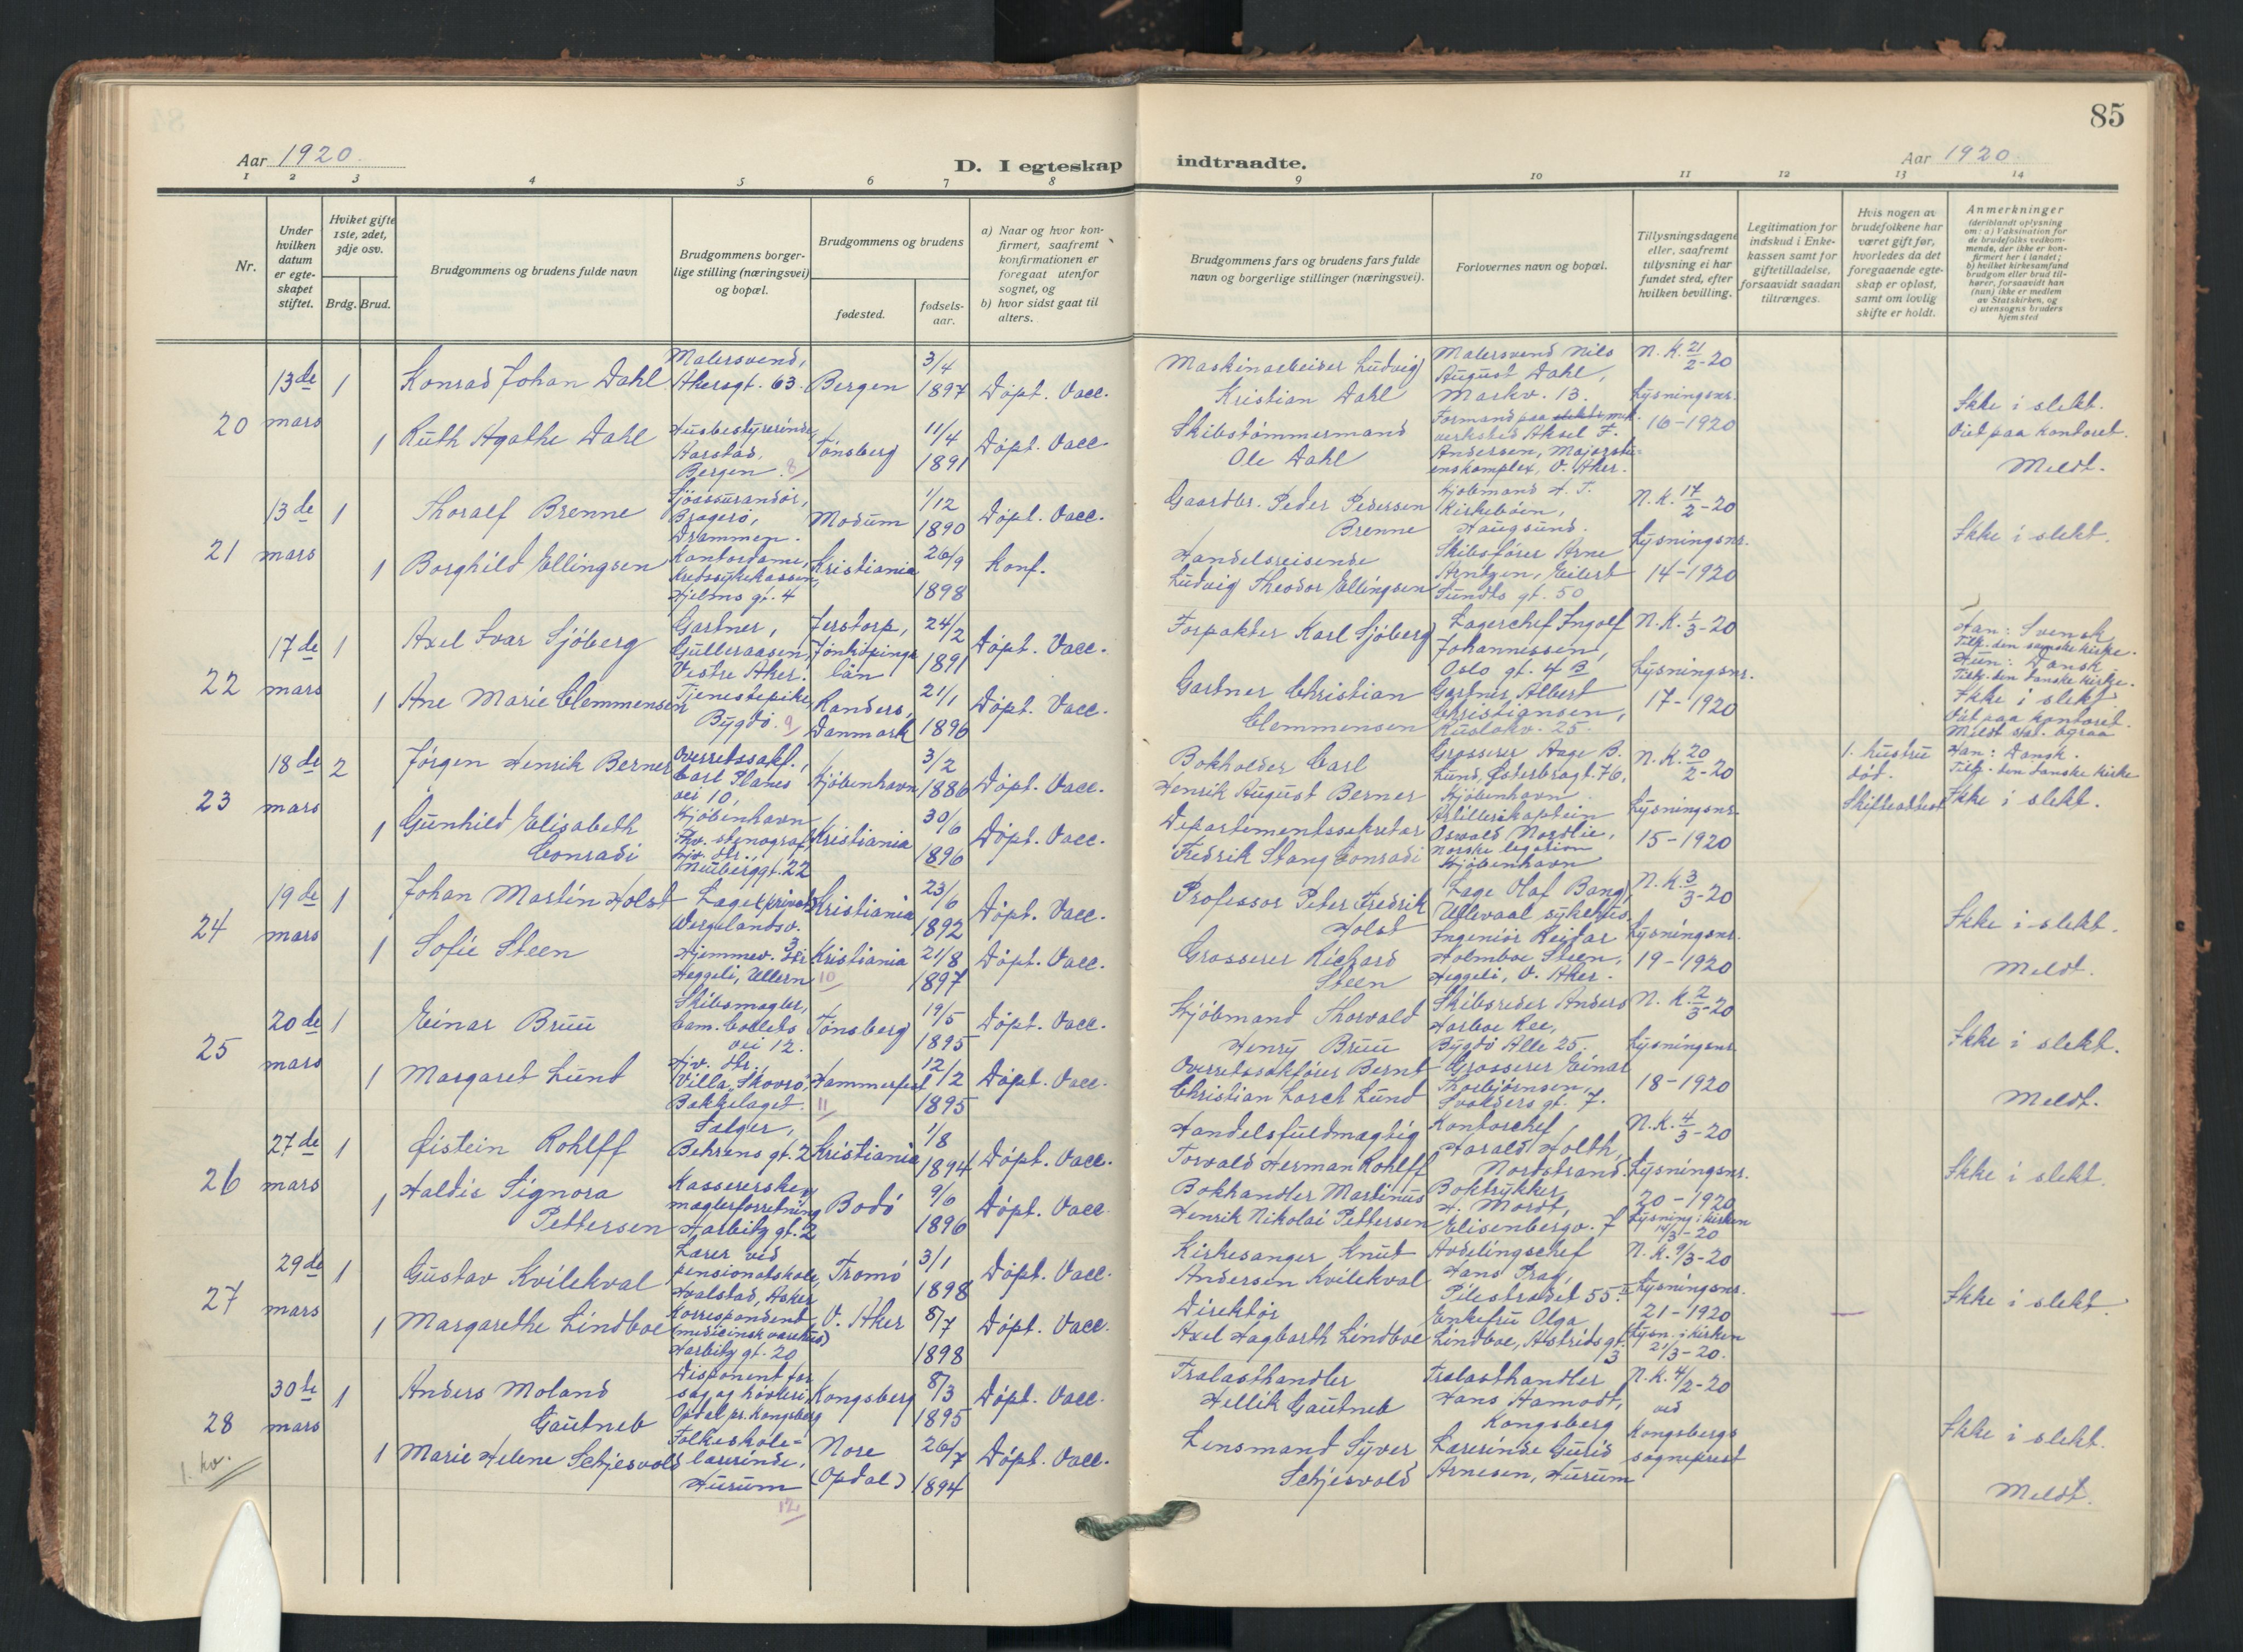 85
Aar 1920.
D. I egteskap indtraadte.
Aar 1920.
1 2 3 4 5 6 7 8 9 10 11 12 13 14
Nr.
Under hvilken datum er egte-skapet stiftet.
Hviket gifte 1ste, 2det, 3dje osv.
Brdg. Brud.
Brudgommens og brudens fulde navn
Brudgommens borger-
lige stilling (næringsvei)
og bopæl.
Brudgommens og brudens
fødested.
fødsels-
aar.
a) Naar og hvor kon-
firmert, saafremt
konfirmationen er
foregaat utenfor
sognet, og
b) hvor sidst gaat til
alters.
Brudgommens fars og brudens fars fulde
navn og borgerlige stillinger (næringsvei).
Forlovernes navn og bopæl.
Tillysningsdagene
eller, saafremt
tillysning ei har
fundet sted, efter
hvilken bevilling.
Legitimation for
indskud i Enke-
kassen samt for
giftetilladelse,
forsaavidt saadan
tiltrænges.
Hvis nogen av
brudefolkene har
været gift før,
hvorledes da det
foregaaende egte-
skap er opløst,
samt om lovlig
skifte er holdt.
Anmerkninger
(deriblandt oplysning
om: a) Vaksination for
de brudefolks vedkom-
mende, der ikke er kon-
firmert her i landet;
b) hvilket kirkesamfund
brudgom eller brud til-
hører, forsaavidt han
(hun) ikke er medlem
av Statskirken, og
c) utensogns bruders
hjemsted
20
13de
mars
1
Konrad Johan Dahl
Malersvend,
Akersgt. 63.
Bergen
3/4
1897
Døpt. Vacc.
Maskinarbeider Ludvig
Kristian Dahl
Malersvend Nils
August Dahl,
Markv. 13.
N. K. 21/2-20
Lysningsnr.
16-1920
Ikke i slekt.
Viet paa kontoret.
Meldt.
1
Ruth Agathe Dahl
Husbestyrerinde
Aarstad,
Bergen. 8
Tønsberg
11/4
1891
Døpt. Vacc.
Skibstømmermand
Ole Dahl
Formand paa mek.
verksted Aksel F.
Andersen, Majorstu-
enskomplex, V. Aker.
21
13de
mars
1
Thoralf Brenne
Sjøassurandør,
Bragerø,
Drammen.
Modum
1/12
1890
Døpt. Vacc.
Gaardbr. Peder Pedersen
Brenne
Kjøbmand H. T.
Kirkebøen,
Haugsund.
N. K. 17/2-20
Lysningsnr.
14-1920
Ikke i slekt.
1
Borghild Ellingsen
Kontordame,
Kredssykekassen,
Hjelms gt. 4
Kristiania
26/9
1898
Konf.
Handelsreisende
Ludvig Theodor Ellingsen
Skibsfører Arne
Arntzen, Eilert
Sundts gt. 50
22
17de
mars
1
Axel Ivar Sjöberg
Gartner,
Gulleraasen,
Vestre Aker.
Jerstorp,
Jönköpings
län
24/2
1891
Døpt. Vacc.
Forpakter Karl Sjöberg
Lagerchef Ingolf
Johannessen,
Oslo gt. 4 B
N. K. 1/3-20
Lysningsnr.
17-1920
Han: Svensk
Tilh. den svenske kirke.
Hun: Dansk
Tilh. den danske kirke.
Ikke i slekt
Viet paa kontoret.
1
Ane Marie Clemmensen
Tjenestepike,
Bygdø. 9
Randers,
Danmark
21/1
1896
Døpt. Vacc.
Gartner Christian
Clemmensen
Gartner Albert
Christiansen,
Huslokv. 25.
23
18de
mars
2
Jørgen Henrik Berner
Overretssakf.,
Carl Planes
vei 10,
Kjøbenhavn
Kjøbenhavn
3/2
1886
Døpt. Vacc.
Bokholder Carl
Henrik August Berner
Grosserer Aage B.
Lund, Østerbrogt. 76,
Kjøbenhavn
N. K. 20/2-20
Lysningsnr.
15-1920
1. hustru
død.
Skifteattest
Han: Dansk.
Tilh. den danske kirke
Ikke i slekt.
1
Gunhild Elisabeth
Conradi
Fhv. stenograf,
hjv. dtr.,
Munberggt. 22
Kristiania
30/6
1896
Døpt. Vacc.
Departementssekretær
Fredrik Stang Conradi
Artillerikaptein
Osvald Nordlie,
Norske legation
Kjøbenhavn
24
19de
mars
1
Johan Martin Holst
Læge (privat)
Wergelandsv.
3.
Kristiania
23/6
1892
Døpt. Vacc.
Professor Peter Fredrik
Holst
Læge Olaf Bang,
Ullevaal sykehus
N. K. 3/3-20
Lysningsnr.
19-1920
Ikke i slekt.
Meldt.
1
Sofie Steen
Hjemmev. dtr
Heggeli, Ullern 10
Kristiania
21/8
1897
Døpt. Vacc.
Grosserer Richard
Steen
Ingeniør Reidar
Holmboe Steen,
Heggeli, V. Aker.
25
20de
mars
1
Einar Bruu
Skibsmægler,
Cam. Colletts
vei 12.
Tønsberg
19/5
1895
Døpt. Vacc.
Kjøbmand Thorvald
Henry Bruu
Skibsreder Anders
Harboe Ree,
Bygdø Alle 25.
N. K. 2/3-20
Lysningsnr.
18-1920
Ikke i slekt.
Meldt.
1
Margaret Lund
Hjv. dtr.,
Villa Skovro,
Bækkelaget. 11
Hammerfest
12/12
1895
Døpt. Vacc.
Overretssakfører Bernt
Christian Lorck Lund
Grosserer Einar
Thorbjørnsen,
Svolders gt. 7.
26
27de
mars
1
Øistein Rohlff
Sælger,
Behrens gt. 2
Kristiania
1/8
1894
Døpt. Vacc.
Handelsfuldmægtig
Torvald Herman Rohlff
Kontorchef
Harald Holth,
Nordstrand.
N. K. 4/3-20
Lysningsnr.
20-1920
Lysning i kirken
14/3-20
Ikke i slekt.
1
Haldis Signora
Pettersen
Kassererske v.
mæglerforretning
Harbitz gt. 2
Bodø
9/6
1896
Døpt. Vacc.
Bokhandler Martinus
Henrik Nikolai Pettersen
Boktrykker
H. Mordt,
Elisenbergv. 7
27
29de
mars
1
Gustav Kvilekval
Lærer ved
pensionatskole,
Hvalstad, Asker
Tromø
3/1
1898
Døpt. Vacc.
Kirkesanger Knut
Andersen Kvilekval
Avdelingschef
Hans Prag,
Pilestrædet 55 II
N. K. 9/3-20
Lysningsnr.
21-1920
Lysn. i kirken
21/3-20.
Ikke i slekt.
1
Margarethe Lindboe
Korrespondent
(medicinsk varehus)
Harbitz gt. 20
V. Aker
8/7
1898
Døpt. Vacc.
Direktør
Axel Hagbarth Lindboe
Enkefru Olga
Lindboe, Astrids gt.
3
28
30te
mars
1
Anders Moland
Gautneb
Disponent for
sag og høvleri,
Opdal pr. Kongsberg
Kongsberg
8/3
1895
Døpt. Vacc.
Trælasthandler
Hellik Gautneb
Trælasthandler
Hans Hamodt,
Kongsberg
N. K. 4/2-20
ved
Kongsbergs
sogneprest
Ikke i slekt.
Meldt.
1
Marie Helene Schjesvold
Folkeskole-
lærerinde,
Hurum
12
Nore
(Opdal)
26/7
1894
Døpt. Vacc.
Lensmand Syver
Schjesvold
Lærerinde Gurid
Arnesen, Hurum
1. kv.